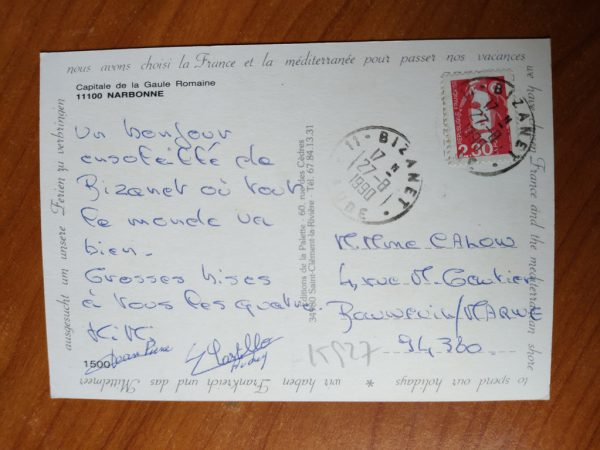 nous avons choisi la France et la méditerranée pour passer nos vacances
Capitale de la Gaule Romaine
11100 NARBONNE
Un bonjour
ensoleillé de
Bizanet où tout
le monde va
bien.
Grosses bises
à vous les quatre.
Kiki
Jean Pierre
1500
Editions de la Palette - 60, rue des Cèdres
34980 Saint-Clément-la-Rivière - Tél. 67.84.13.31
11 - BIZANET
17 H
27-8
1990
AUDE
BIZANET
REPUBLIQUE FRANÇAISE
2,30
M. Mme CALOW
4, rue M. Gautier
Bonneuil/MARNE
94,380.
K927
we have France and the mediterranean shore
to spend our holidays
*
wir haben Frankreich und das Mittelmeer
ausgesucht um unsere Ferien zu verbringen